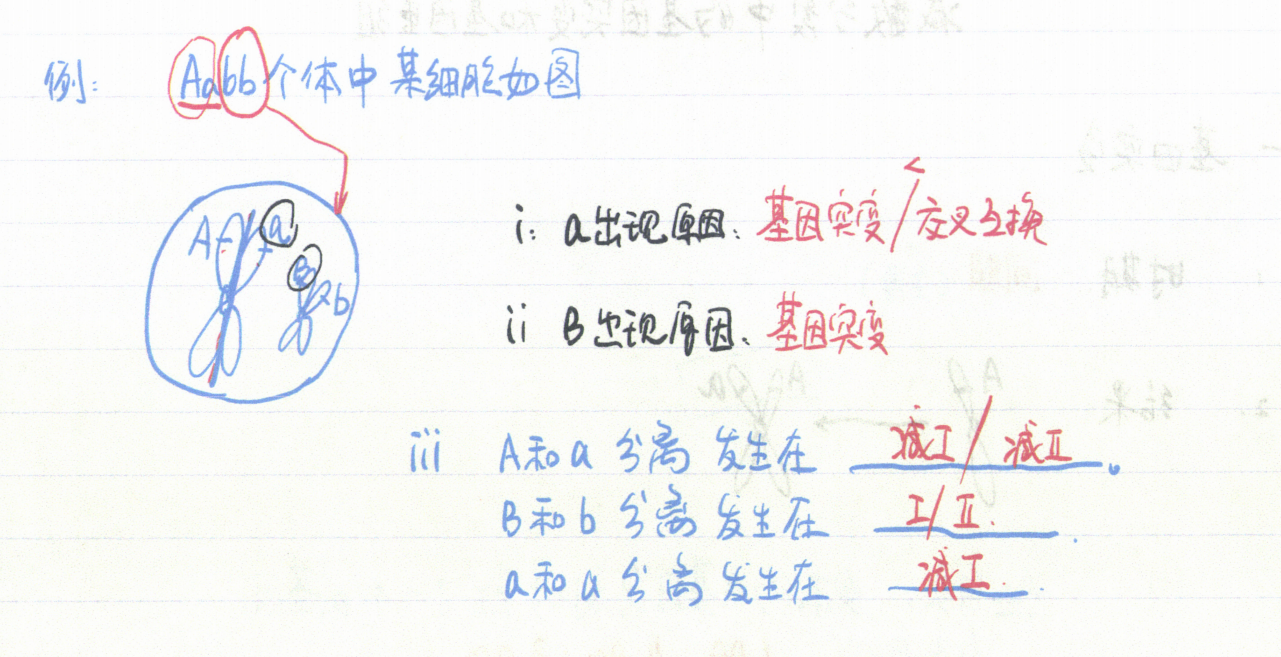 例: Aabb个体中某细胞如图
A a
B b
i: a出现原因: 基因突变/交叉互换
ii B出现原因: 基因突变
iii A和a 分离 发生在 减I/减II.
B和b 分离 发生在 I/II.
a和a 分离 发生在 减I.